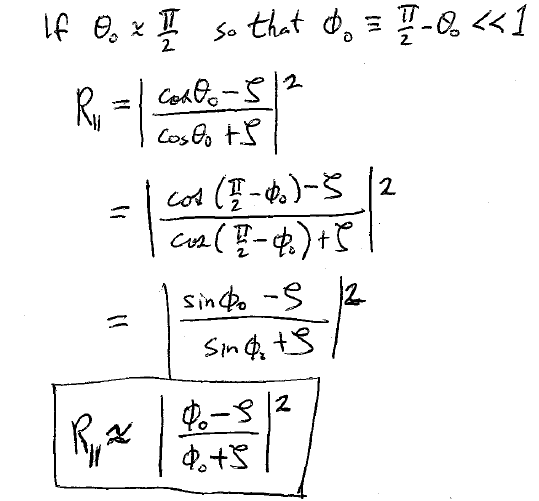 If θ₀ ≈ π/2 so that ϕ₀ ≡ π/2 - θ₀ << 1
R∥ = | (cosθ₀ - ζ) / (cosθ₀ + ζ) |²
= | (cos(π/2 - ϕ₀) - ζ) / (cos(π/2 - ϕ₀) + ζ) |²
= | (sinϕ₀ - ζ) / (sinϕ₀ + ζ) |²
R∥ ≈ | (ϕ₀ - ζ) / (ϕ₀ + ζ) |²